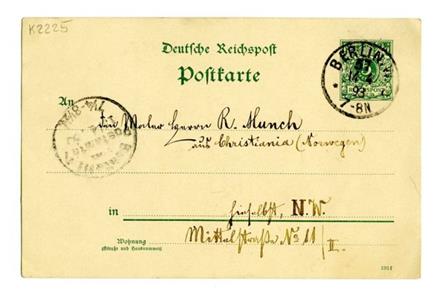 K2225
Deutsche Reichspost
Postkarte
BERLIN, W
14 4
93
7-8N
An
den Maler Herrn R. Munch
aus Christiania (Norwegen)
in hierselbst, N.W.
Wohnung
(Straße und Hausnummer)
Mittelstraße No 11/II.